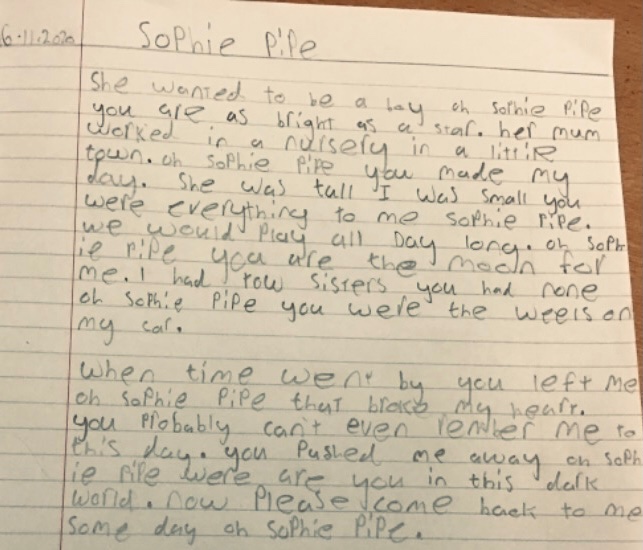 6.11.2020
Sophie Pipe
She wanted to be a boy oh sophie Pipe
you are as bright as a star. her mum
worked in a nursery in a little
town. oh sophie Pipe you made my
day. She was tall I was small you
were everything to me sophie Pipe.
we would Play all Day long. oh Soph
ie Pipe you are the moon for
me. I had tow sisters you had none
oh sophie Pipe you were the weels on
my car.
When time went by you left me
oh sophie Pipe that broke my heart.
you Probably can't even rember me to
this day. you Pushed me away oh soph
ie Pipe were are you in this dark
world. now Please come back to me
some day oh sophie Pipe.